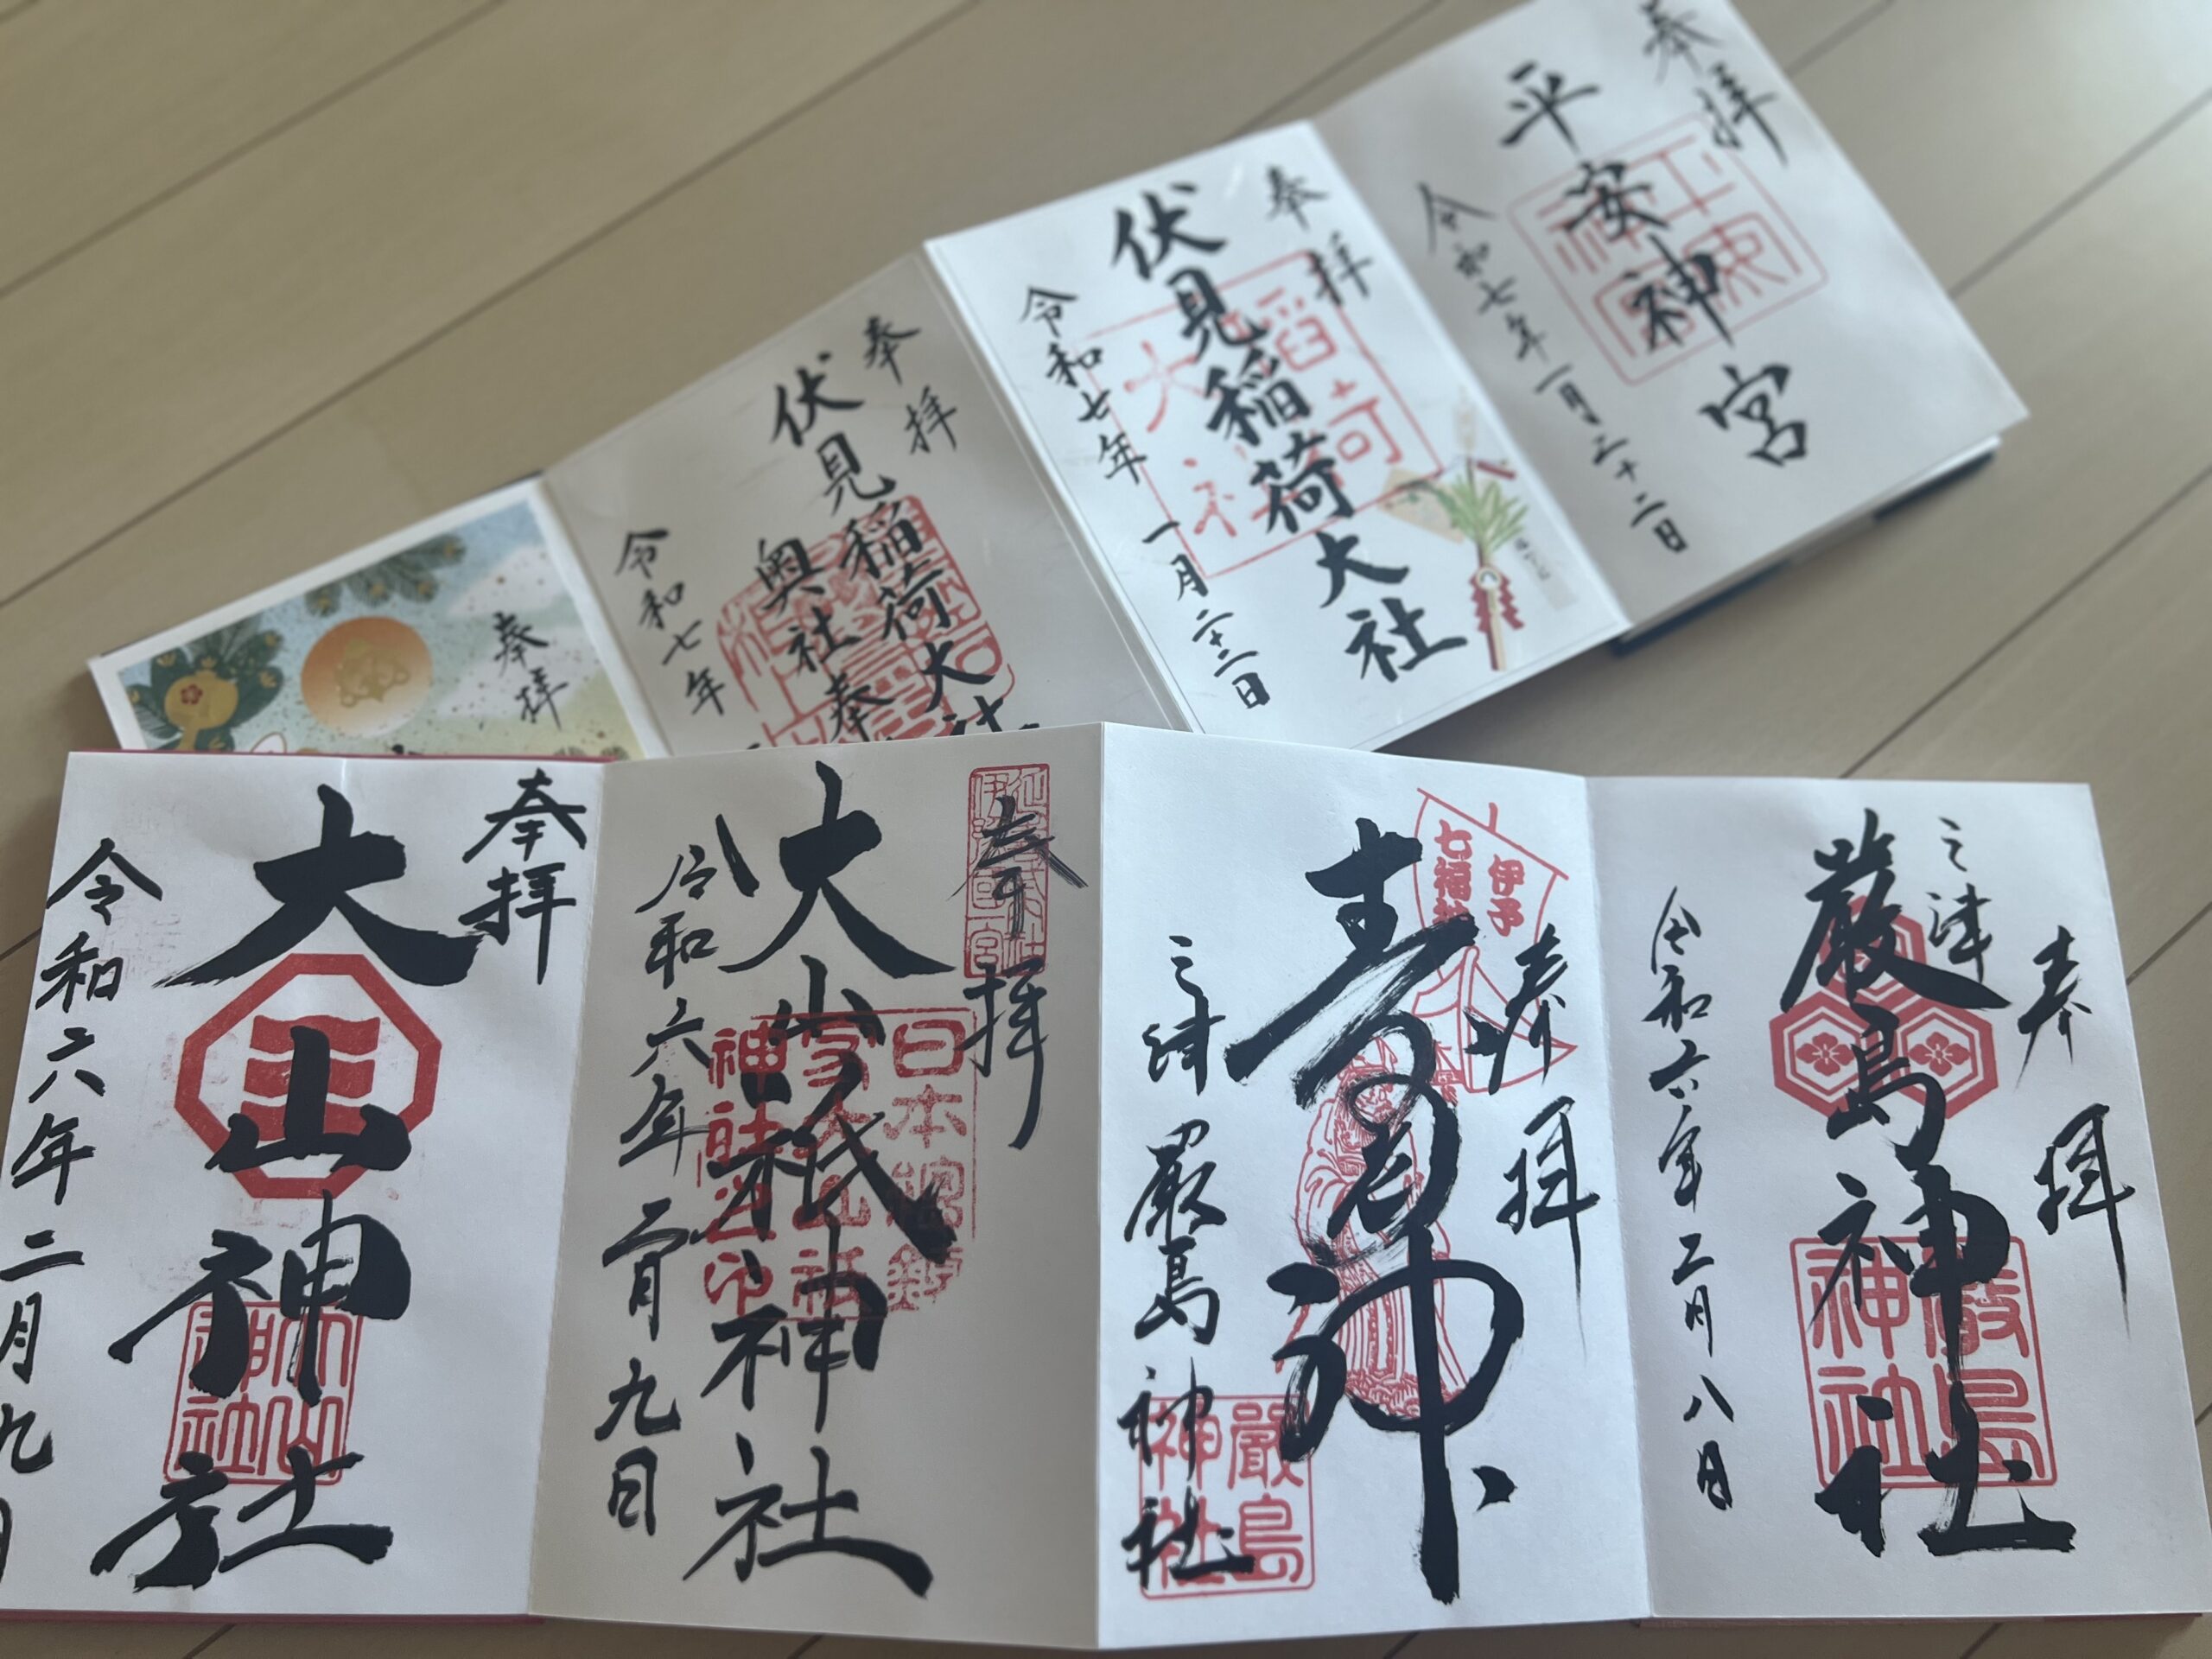 奉拝
平安神宮
令和七年一月二十二日
奉拝
伏見稲荷大社
稲荷
大社
令和七年
一月二十二日
奉拝
伏見稲荷大社
奥社奉
令和七年
奉拝
奉拝
三津
厳島神社
厳島
神社
令和六年二月八日
伊予
七福神
奉拝
寿老神
三津厳島神社
厳島
神社
奉拝
大山祇神社
日本総鎮
守大山祇
神社
令和六年二月九日
奉拝
大山神社
神社
令和六年二月九日